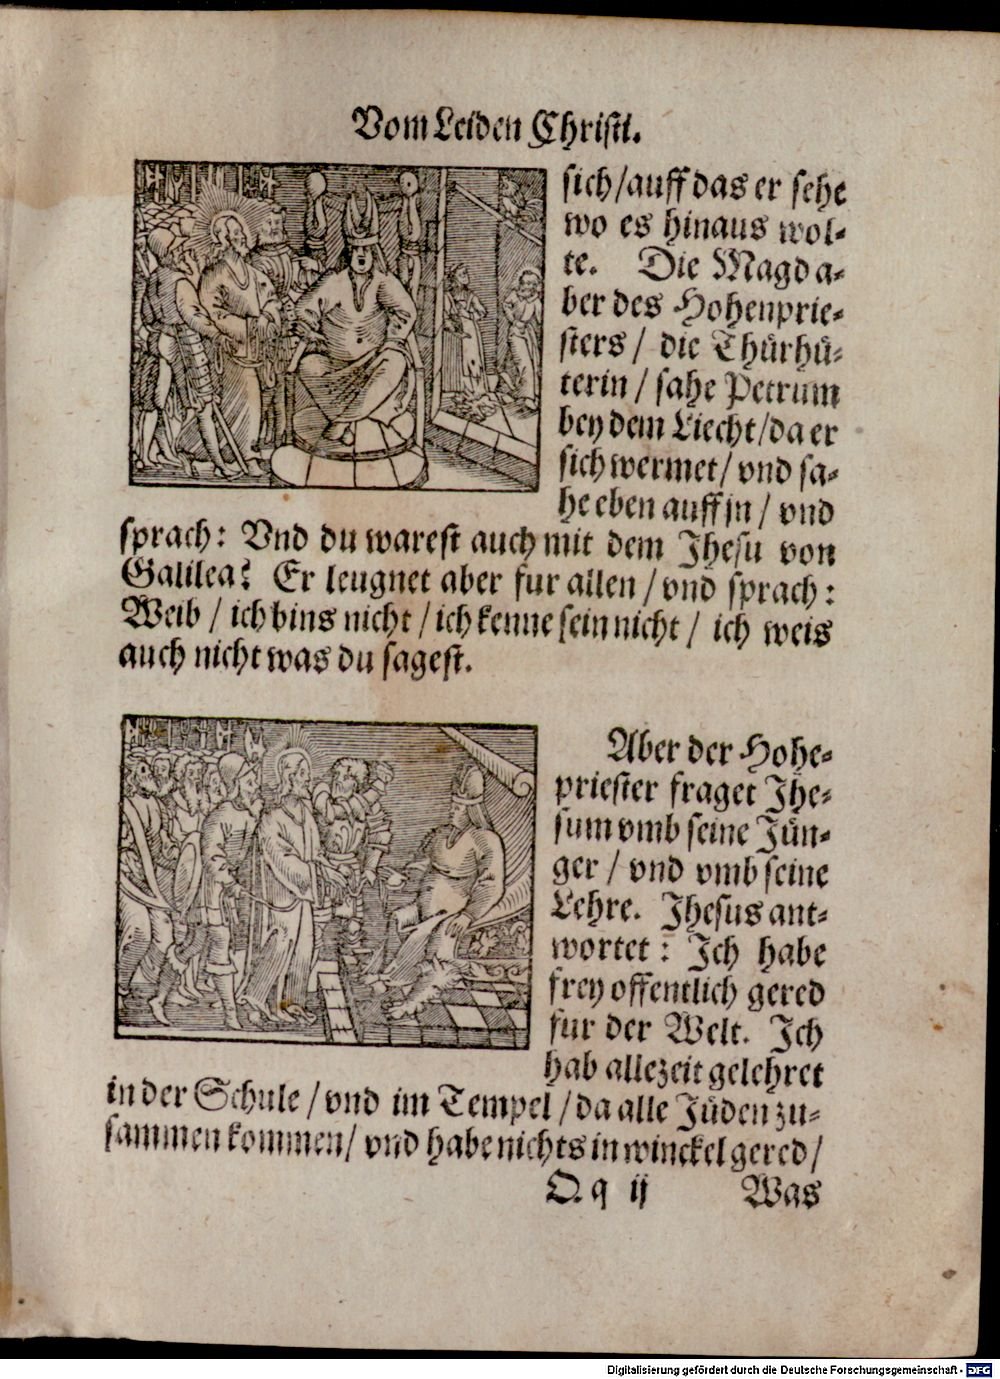 Vom Leiden Christi.
sich/auff das er sehe
wo es hinaus wol-
te. Die Magd a-
ber des Hohenprie-
sters / die Thürhü-
terin / sahe Petrum
bey dem Liecht/da er
sich wermet/ vnd sa-
he eben auff jn / vnd
sprach: Vnd du warest auch mit dem Jhesu von
Galilea? Er leugnet aber fur allen / vnd sprach:
Weib / ich bins nicht / ich kenne sein nicht / ich weis
auch nicht was du sagest.
Aber der Hohe-
priester fraget Jhe-
sum vmb seine Jün-
ger / vnd vmb seine
Lehre. Jhesus ant-
wortet: Ich habe
frey offentlich gered
fur der Welt. Ich
hab allezeit gelehret
in der Schule / vnd im Tempel / da alle Jüden zu-
sammen kommen/ vnd habe nichts in winckel gered/
O. q ij Was
Digitalisierung gefördert durch die Deutsche Forschungsgemeinschaft - DFG